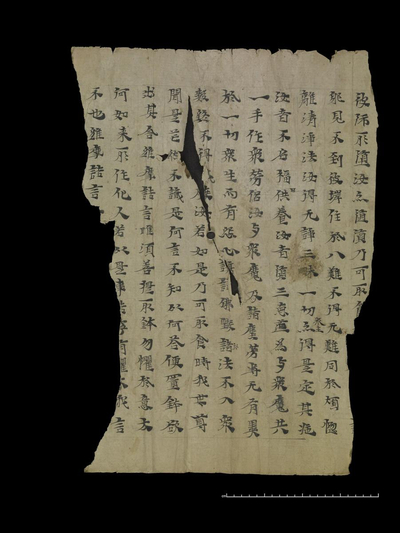 彼師所墮汝亦隨墮乃可取
耶見不到彼岸住於八難不得无難同於煩惱
離清淨法汝得无諍三昧一切亦得是定其施
汝者不名福供養汝者墮三惡道為与眾魔共
一手作眾勞侶汝与眾魔及諸塵勞等无有異
於一切眾生而有怨心謗諸佛毀諸法不入眾
數終不得汝若如是乃可取食時我世尊
聞是茫然不識是何言不知以何答便置鉢欲
出其舍維摩詰言唯須菩提取鉢勿懼於意云
何如來所作化人若以是事詰寧有懼不我言
不也維摩詰言